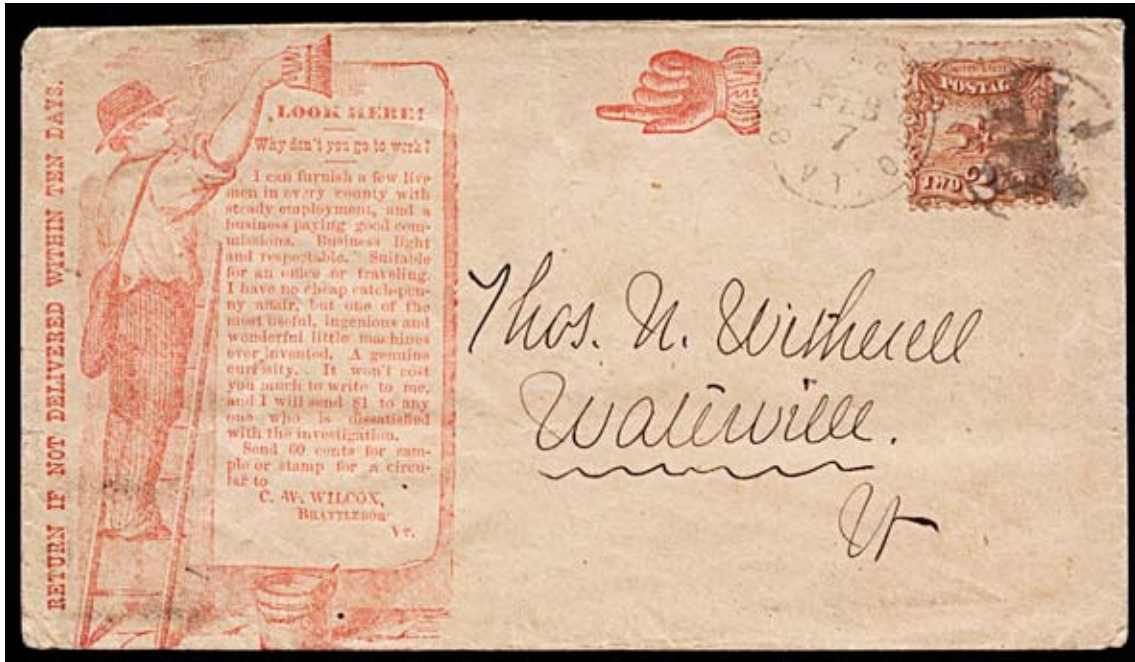 RETURN IF NOT DELIVERED WITHIN TEN DAYS.
LOOK HERE!
Why don't you go to work?
I can furnish a few live
men in every county with
steady employment, and a
business paying good com-
missions. Business light
and respectable. Suitable
for an office or traveling.
I have no cheap catch-pen-
ny affair, but one of the
most useful, ingenious and
wonderful little machines
ever invented. A genuine
curiosity. It won't cost
you much to write to me,
and I will send $1 to any
one who is dissatisfied
with the investigation.
Send 60 cents for sam-
ple or stamp for a circu-
lar to
C. W. WILCOX,
BRATTLEBORO
VT.
FEB
7
VT
POSTAGE
TWO 2
Thos. N. Witherell
Waterville.
Vt